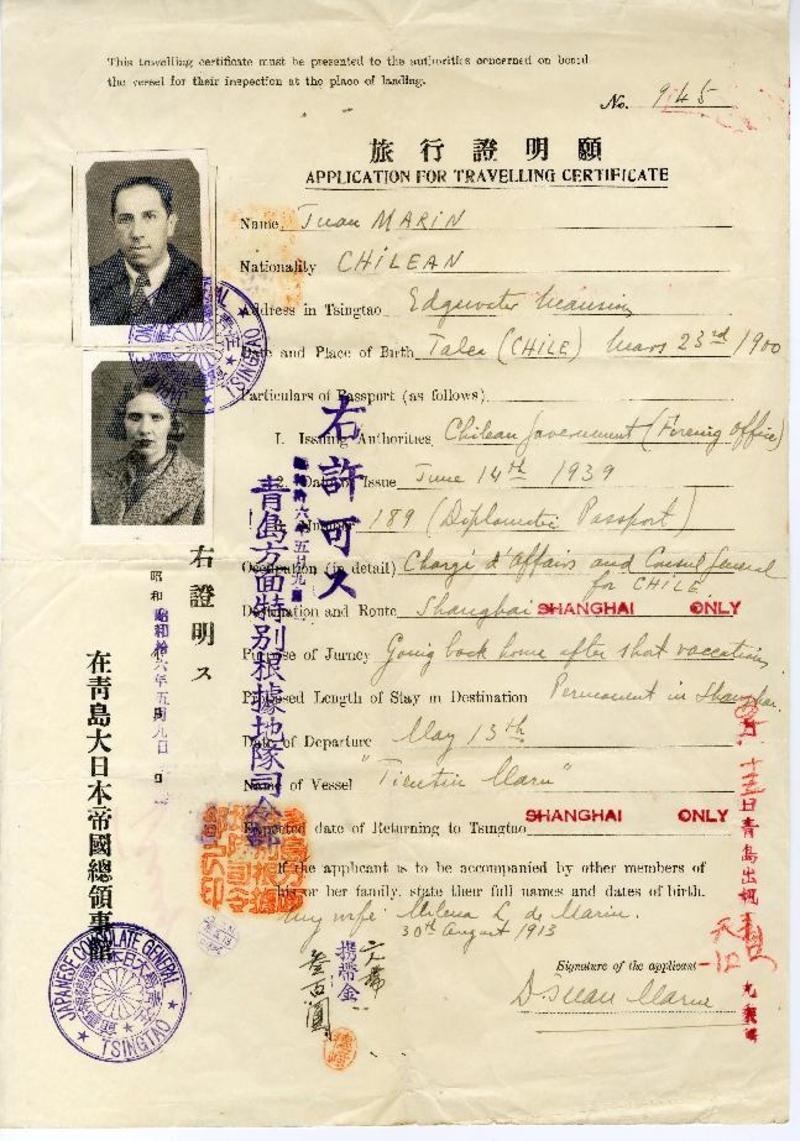 This travelling certificate must be presented to the authorities concerned on board
the vessel for their inspection at the place of landing.
No. 945
旅行證明願
APPLICATION FOR TRAVELLING CERTIFICATE
Name Juan MARIN
Nationality CHILEAN
Address in Tsingtao Edgewater Mansions
Date and Place of Birth Talca (CHILE) Mars 23rd 1900
Particulars of Passport (as follows)
1. Issuing Authorities Chilean Government (Foreing Office)
2. Date of Issue June 14th 1939
189 (Diplomatic Passport)
Occupation (in detail) Chargé d'Affairs and Consul General
for CHILE
Destination and Route Shanghai SHANGHAI ONLY
Purpose of Jurney Going back home after short vaccations
Proposed Length of Stay in Destination Permanent in Shanghai
Date of Departure May 13th
Name of Vessel "Tientsin Maru"
SHANGHAI ONLY
Expected date of Returning to Tsingtao
If the applicant is to be accompanied by other members of
his or her family, state their full names and dates of birth.
My wife Milena L. de Marin.
30th August 1913
Signature of the applicant
D. Juan Marin
右許可ス
昭和拾六年五月九日
青島方面特別根據地隊司令部
右證明ス
昭和
昭和拾六年五月九日
在青島大日本帝國總領事館
携帯金
参百圓
十三日青島出帆
JAPANESE CONSULATE GENERAL
TSINGTAO